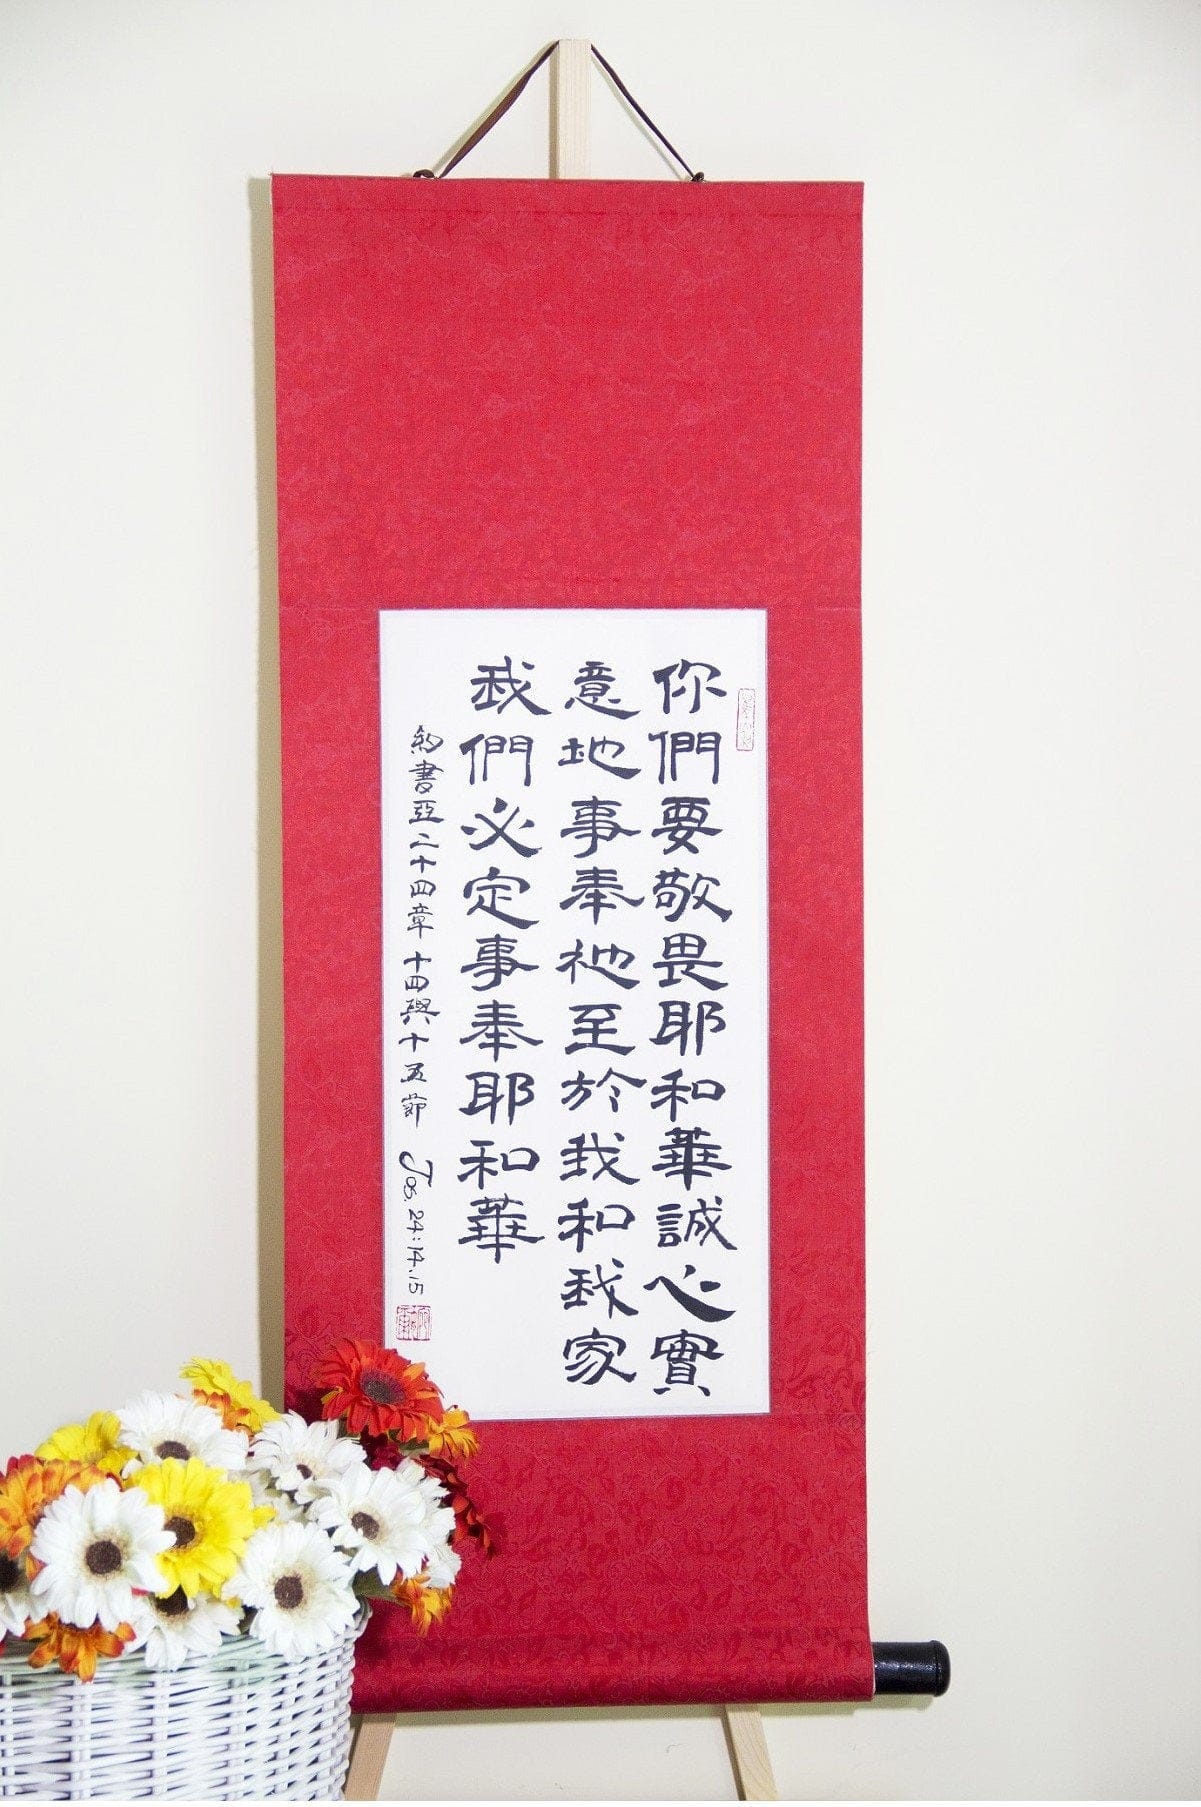 你們要敬畏耶和華誠心實
意地事奉祂至於我和我家
我們必定事奉耶和華
約書亞二十四章十四與十五節 Jos. 24:14.15